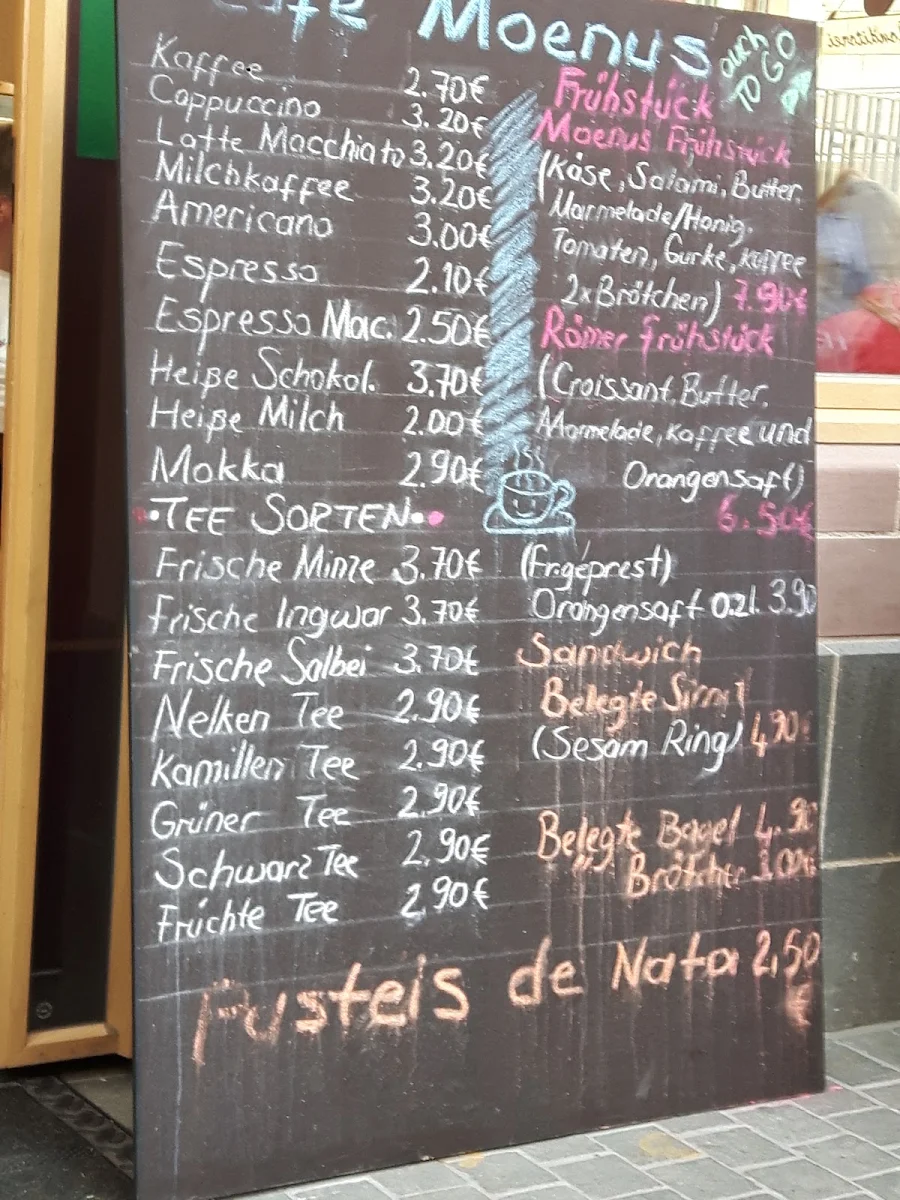 Café Moenus
auch
TO GO
Kaffee 2.70€
Cappuccino 3.20€
Latte Macchiato 3.20€
Milchkaffee 3.20€
Americano 3.00€
Espresso 2.10€
Espresso Mac. 2.50€
Heiße Schokol. 3.70€
Heiße Milch 2.00€
Mokka 2.90€
•TEE SORTEN•
Frische Minze 3.70€
Frische Ingwar 3.70€
Frische Salbei 3.70€
Nelken Tee 2.90€
Kamillen Tee 2.90€
Grüner Tee 2.90€
Schwarz Tee 2.90€
Früchte Tee 2.90€
Frühstück
Moenus Frühstück
(Käse, Salami, Butter,
Marmelade/Honig,
Tomaten, Gurke, Kaffee
2x Brötchen) 7.90€
Römer Frühstück
(Croissant, Butter,
Marmelade, Kaffee und
Orangensaft)
6.50€
(Fr.geprest)
Orangensaft 0.2l. 3.90
Sandwich
Belegte
(Sesam Ring) 4,90€
Belegte Bagel 4.90
Brötchen 3.00€
Pasteis de Nata 2,50
€